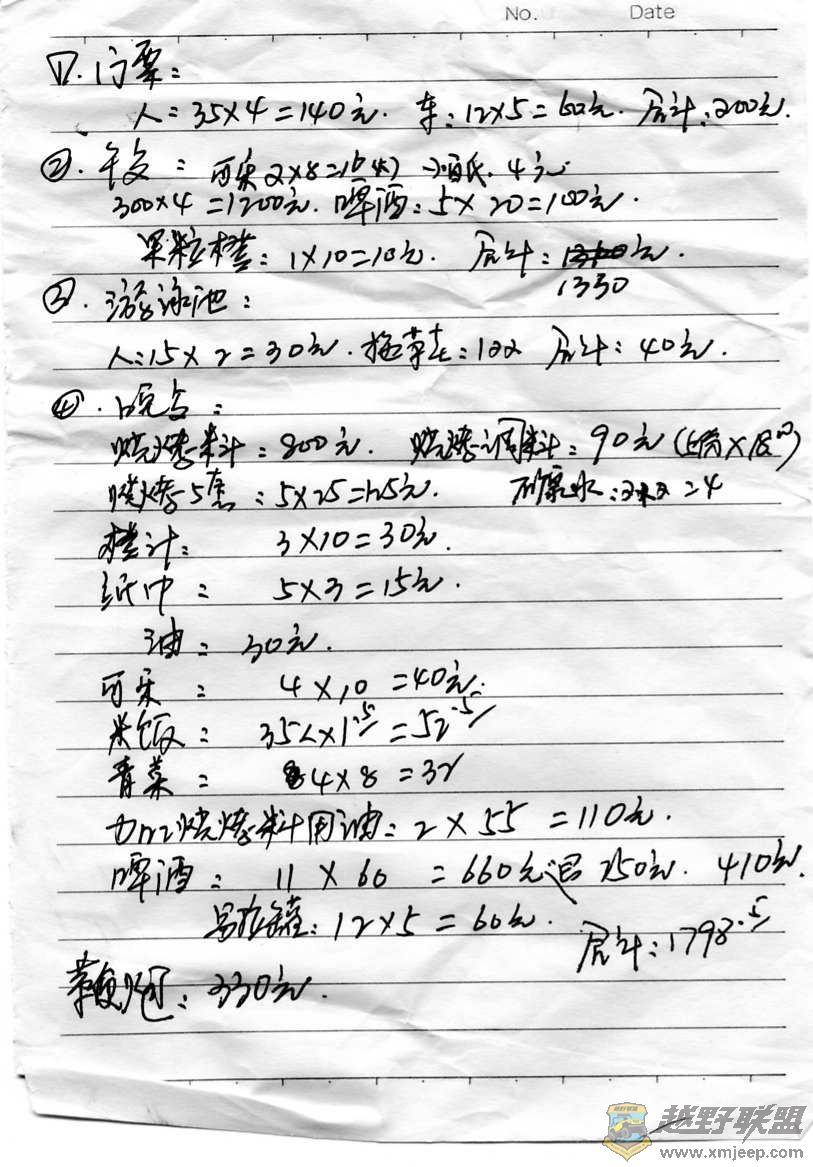 No. Date
①. 门票:
人: 35×4=140元. 车: 12×5=60元. 合计: 200元.
②. 午饭: 可乐2×8=16 4元
300×4=1200元. 啤酒: 5×20=100元.
果粒橙: 1×10=10元. 合计: 元.
1330
③. 游泳池:
人: 15×2=30元. 拖 合计: 40元.
④. 晚:
烧烤料: 800元. 烧烤调料: 90元
烧烤: 5×25=125元. 矿泉水: =4
橙汁: 3×10=30元.
纸巾: 5×3=15元.
油: 30元.
可乐: 4×10=40元.
米饭: 35人×1.5=52.5
青菜: 4×8=32
加工烧烤料用油: 2×55=110元.
啤酒: 11×60=660元退250元. 410元.
易拉罐: 12×5=60元.
合计: 1798.5
鞭炮: 330元.
越野联盟
www.xmjeep.com